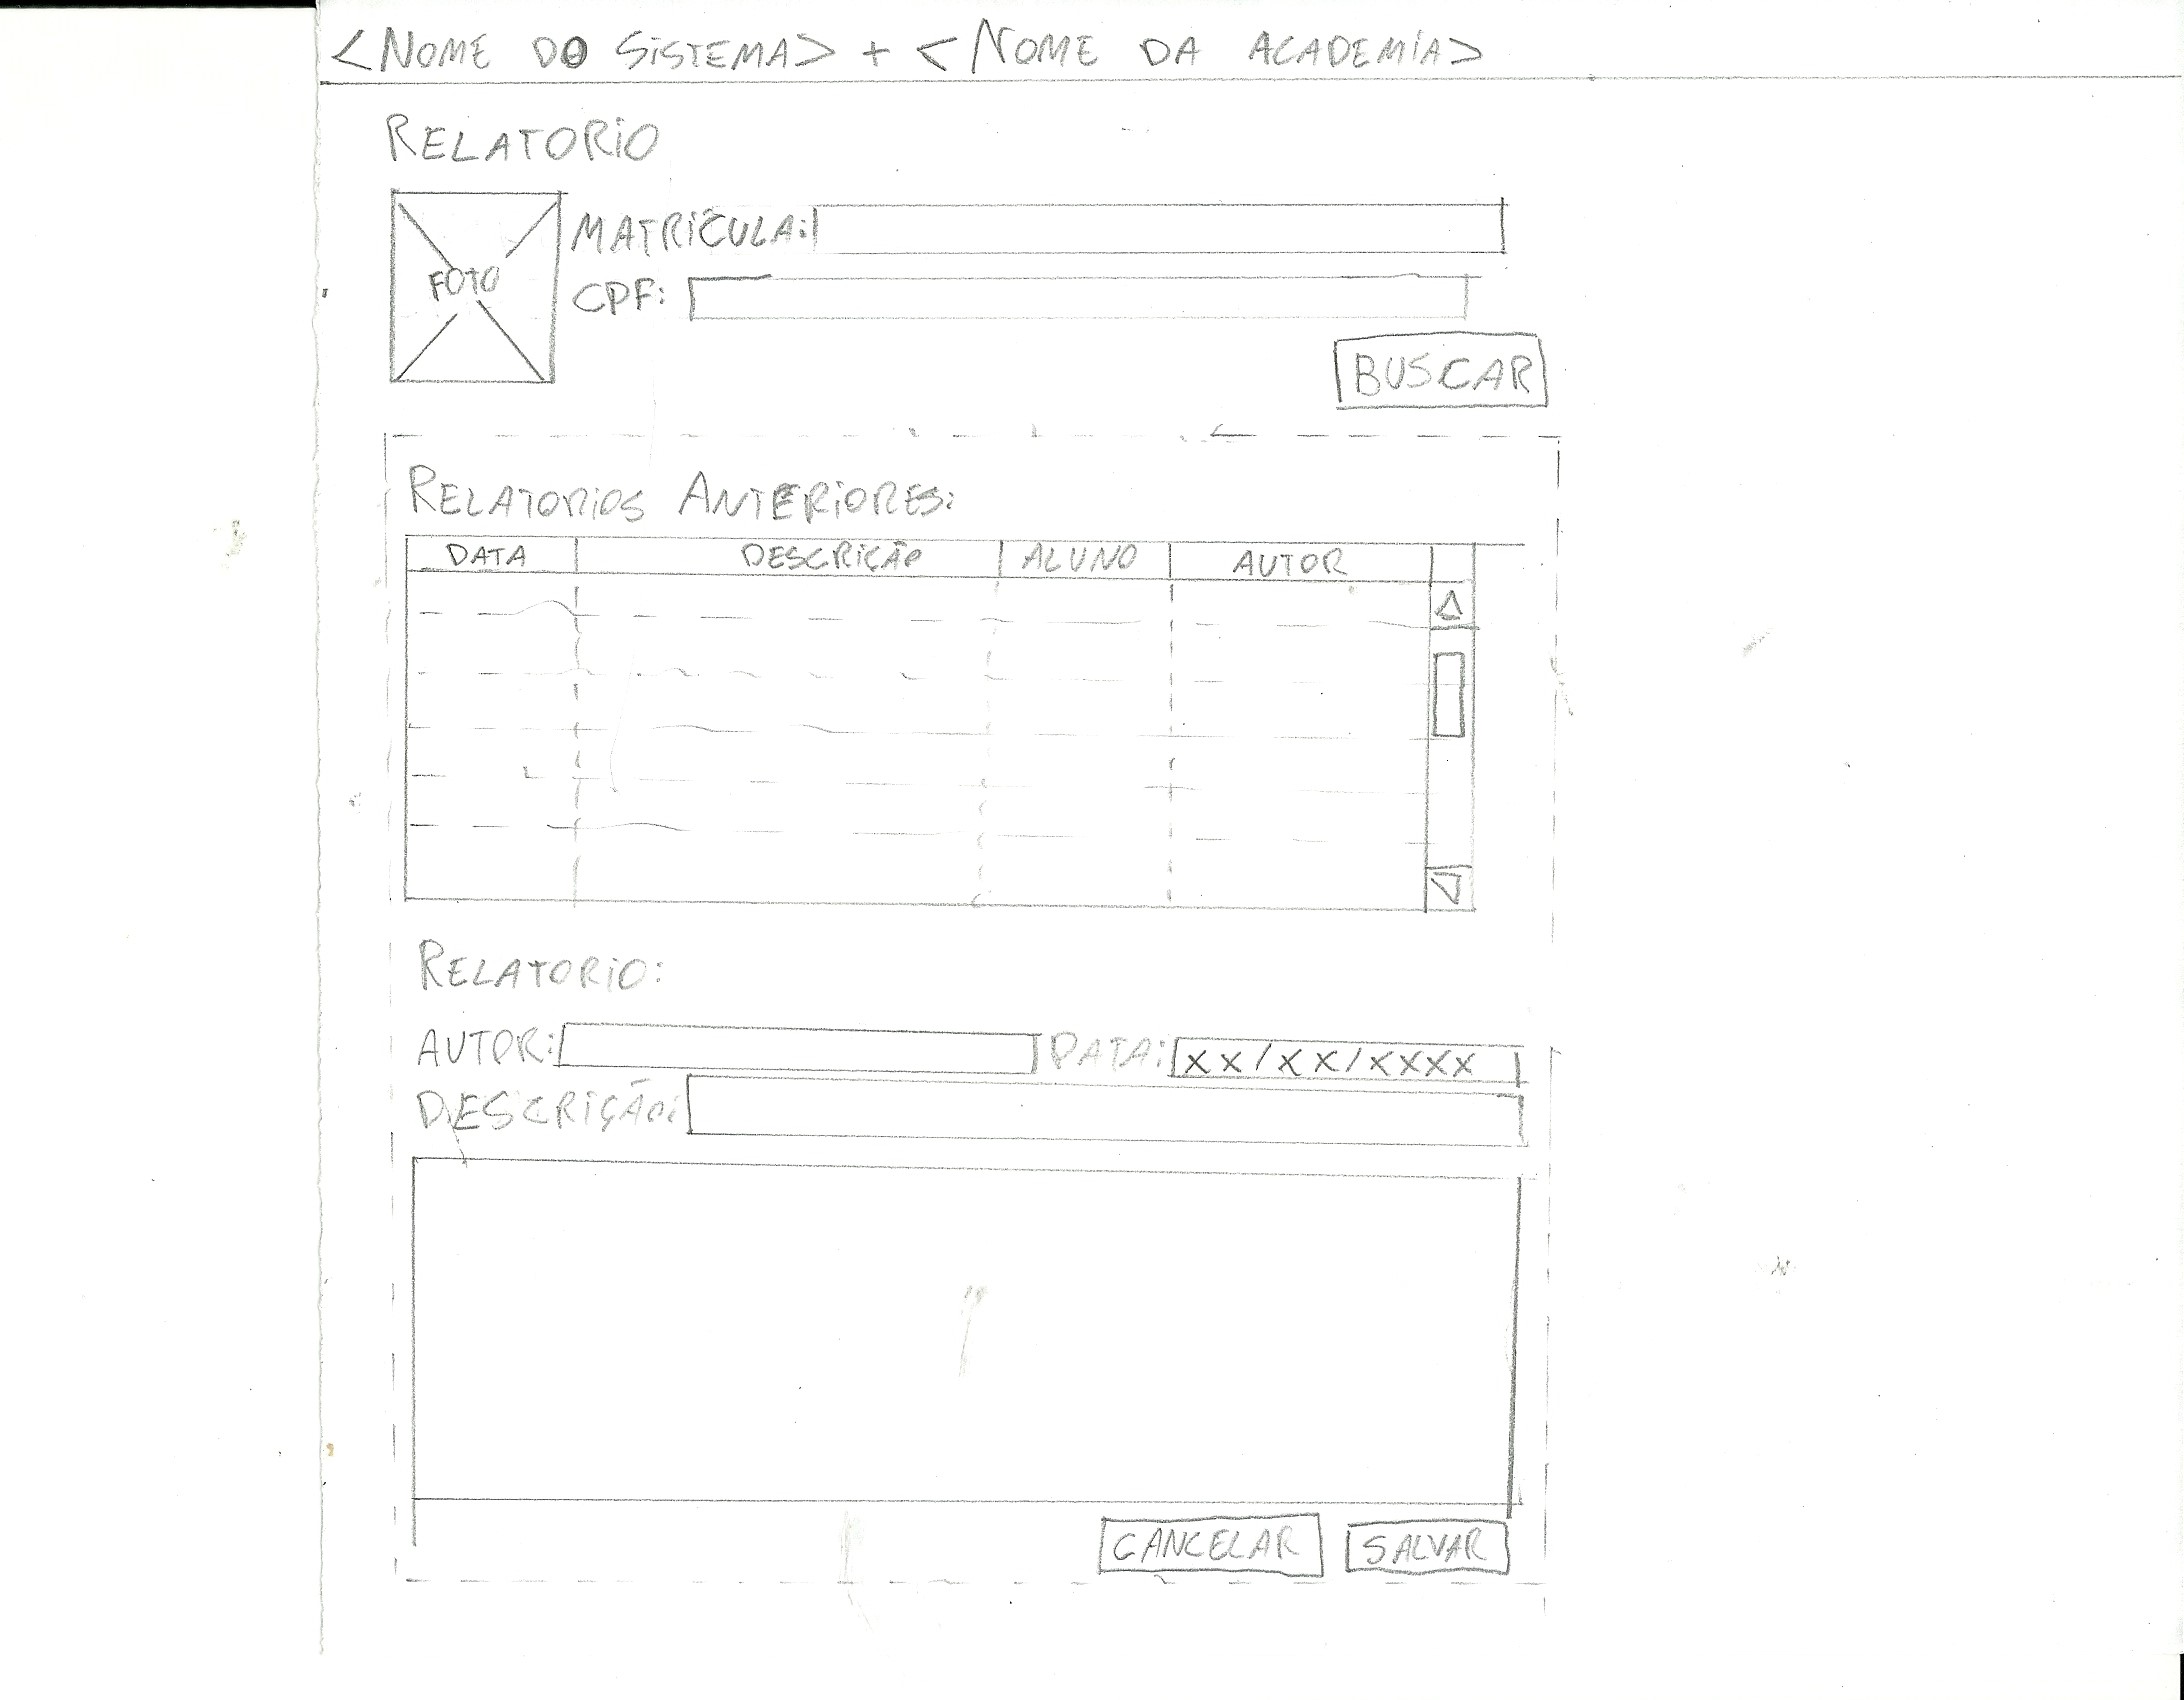 <NOME DO SiSTEMA> + <NOME DA ACADEMiA>
RELATORiO
FOTO
MATRiCULA:
CPF:
BUSCAR
RELATORiOS ANTERiORES:
DATA DESCRiÇÃO ALUNO AUTOR
RELATORiO:
AUTOR: DATA: XX/XX/XXXX
DESCRiÇÃO:
CANCELAR SALVAR